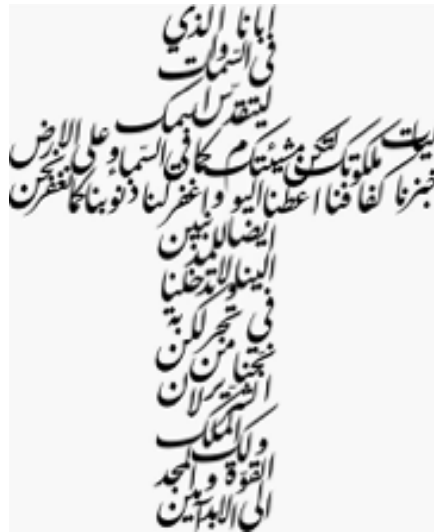 ابانا الذي
في السموات
ليتقدس اسمك
ليات ملكوتك لتكن مشيئتك كما في السماء وعلى الارض
خبزنا كفافنا اعطنا اليوم واغفر لنا ذنوبنا كما نغفر نحن
ايضا للمذنبين
الينا ولا تدخلنا
في تجربة لكن
نجنا من
الشرير لان
لك الملك و
القوة والمجد
الى الابد آمين